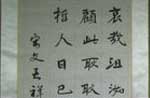 哀哉沮洳
顧此耿耿
哲人日已
宋文天祥